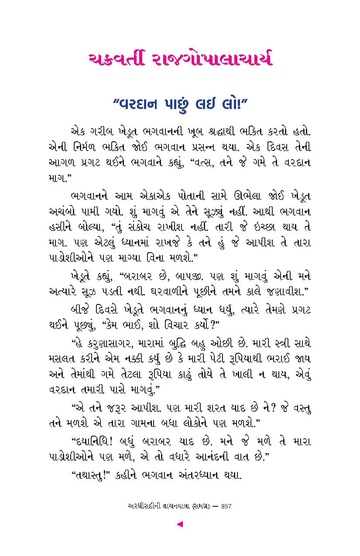 ચક્રવર્તી રાજગોપાલાચાર્ય
“વરદાન પાછું લઇ લો!”
એક ગરીબ ખેડૂત ભગવાનની ખૂબ શ્રદ્ધાથી ભક્તિ કરતો હતો.
એની નિર્મળ ભક્તિ જોઈ ભગવાન પ્રસન્ન થયા. એક દિવસ તેની
આગળ પ્રગટ થઈને ભગવાને કહ્યું, “વત્સ, તને જે ગમે તે વરદાન
માગ.”
ભગવાનને આમ એકાએક પોતાની સામે ઊભેલા જોઈ ખેડૂત
અચંબો પામી ગયો. શું માગવું એ તેને સૂઝ્યું નહીં. આથી ભગવાન
હસીને બોલ્યા, “તું સંકોચ રાખીશ નહીં. તારી જે ઇચ્છા થાય તે
માગ. પણ એટલું ધ્યાનમાં રાખજે કે તને હું જે આપીશ તે તારા
પાડોશીઓને પણ માગ્યા વિના મળશે.”
ખેડૂતે કહ્યું, “બરાબર છે, બાપજી. પણ શું માગવું એની મને
અત્યારે સૂઝ પડતી નથી. ઘરવાળીને પૂછીને તમને કાલે જણાવીશ.”
બીજે દિવસે ખેડૂતે ભગવાનનું ધ્યાન ધર્યું, ત્યારે તેમણે પ્રગટ
થઈને પૂછ્યું, “કેમ ભાઈ, શો વિચાર કર્યો?”
“હે કરુણાસાગર, મારામાં બુદ્ધિ બહુ ઓછી છે. મારી સ્ત્રી સાથે
મસલત કરીને એમ નક્કી કર્યું છે કે મારી પેટી રૂપિયાથી ભરાઈ જાય
અને તેમાંથી ગમે તેટલા રૂપિયા કાઢું તોયે તે ખાલી ન થાય, એવું
વરદાન તમારી પાસે માગવું.”
“એ તને જરૂર આપીશ. પણ મારી શરત યાદ છે ને? જે વસ્તુ
તને મળશે એ તારા ગામના બધા લોકોને પણ મળશે.”
“દયાનિધિ! બધું બરાબર યાદ છે. મને જે મળે તે મારા
પાડોશીઓને પણ મળે, એ તો વધારે આનંદની વાત છે.”
“તથાસ્તુ!” કહીને ભગવાન અંતરધ્યાન થયા.
અરધીસદીની વાચનયાત્રા (સમગ્ર) — 857